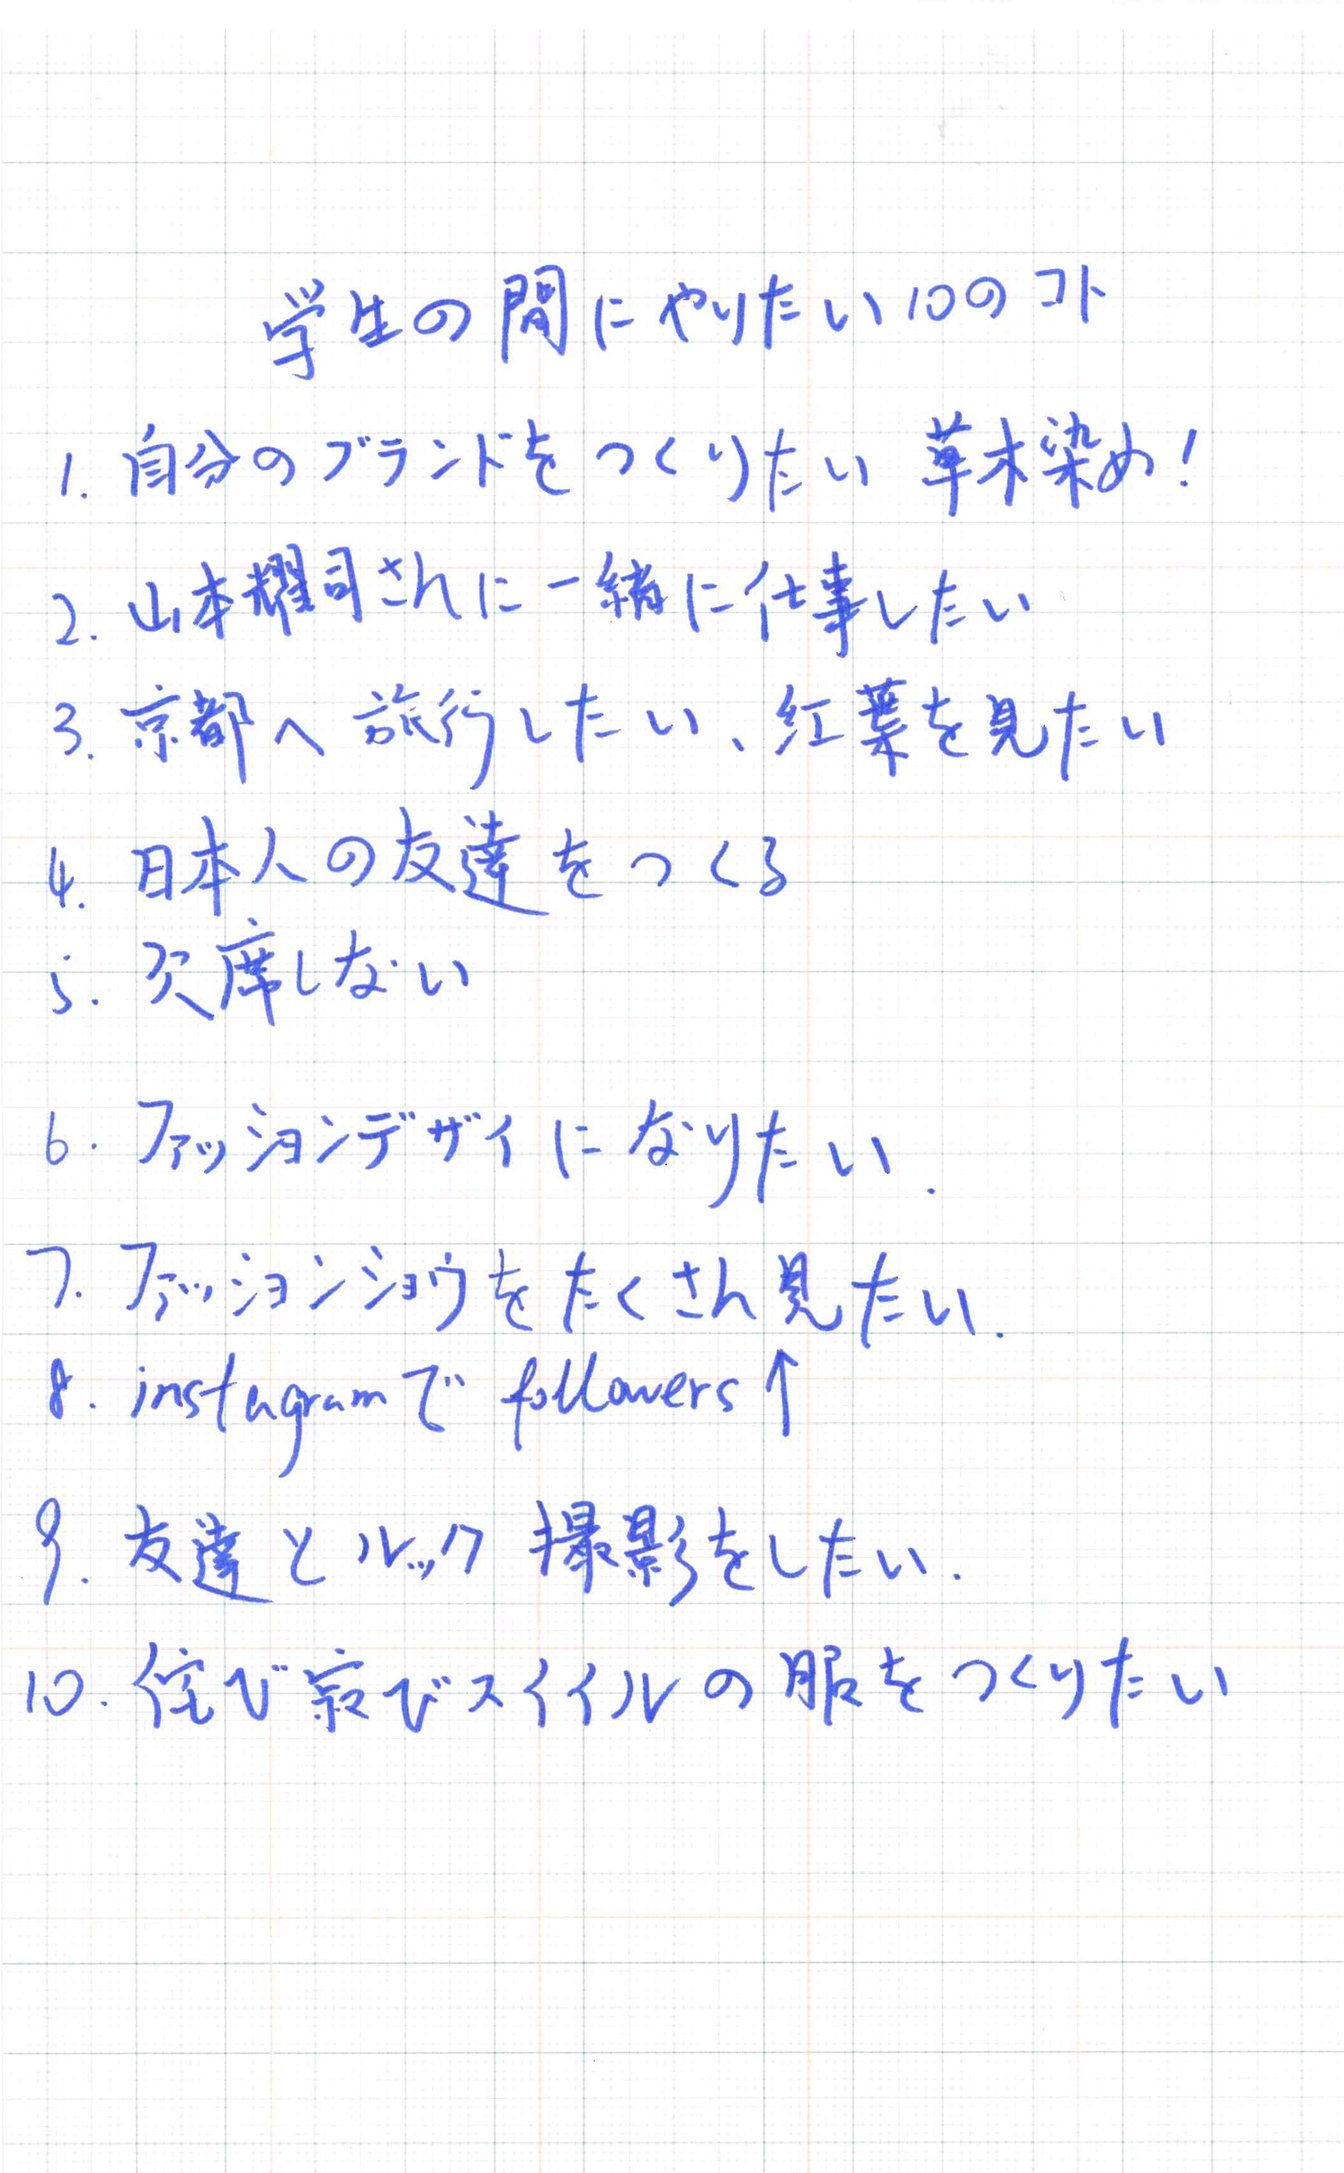 学生の間にやりたい10のコト
1. 自分のブランドをつくりたい 草木染め!
2. 山本耀司さんに一緒に仕事したい
3. 京都へ旅行したい、紅葉を見たい
4. 日本人の友達をつくる
5. 欠席しない
6. ファッションデザイになりたい.
7. ファッションショウをたくさん見たい.
8. instagramで followers↑
9. 友達とルック撮影をしたい.
10. 侘び寂びスイイルの服をつくりたい